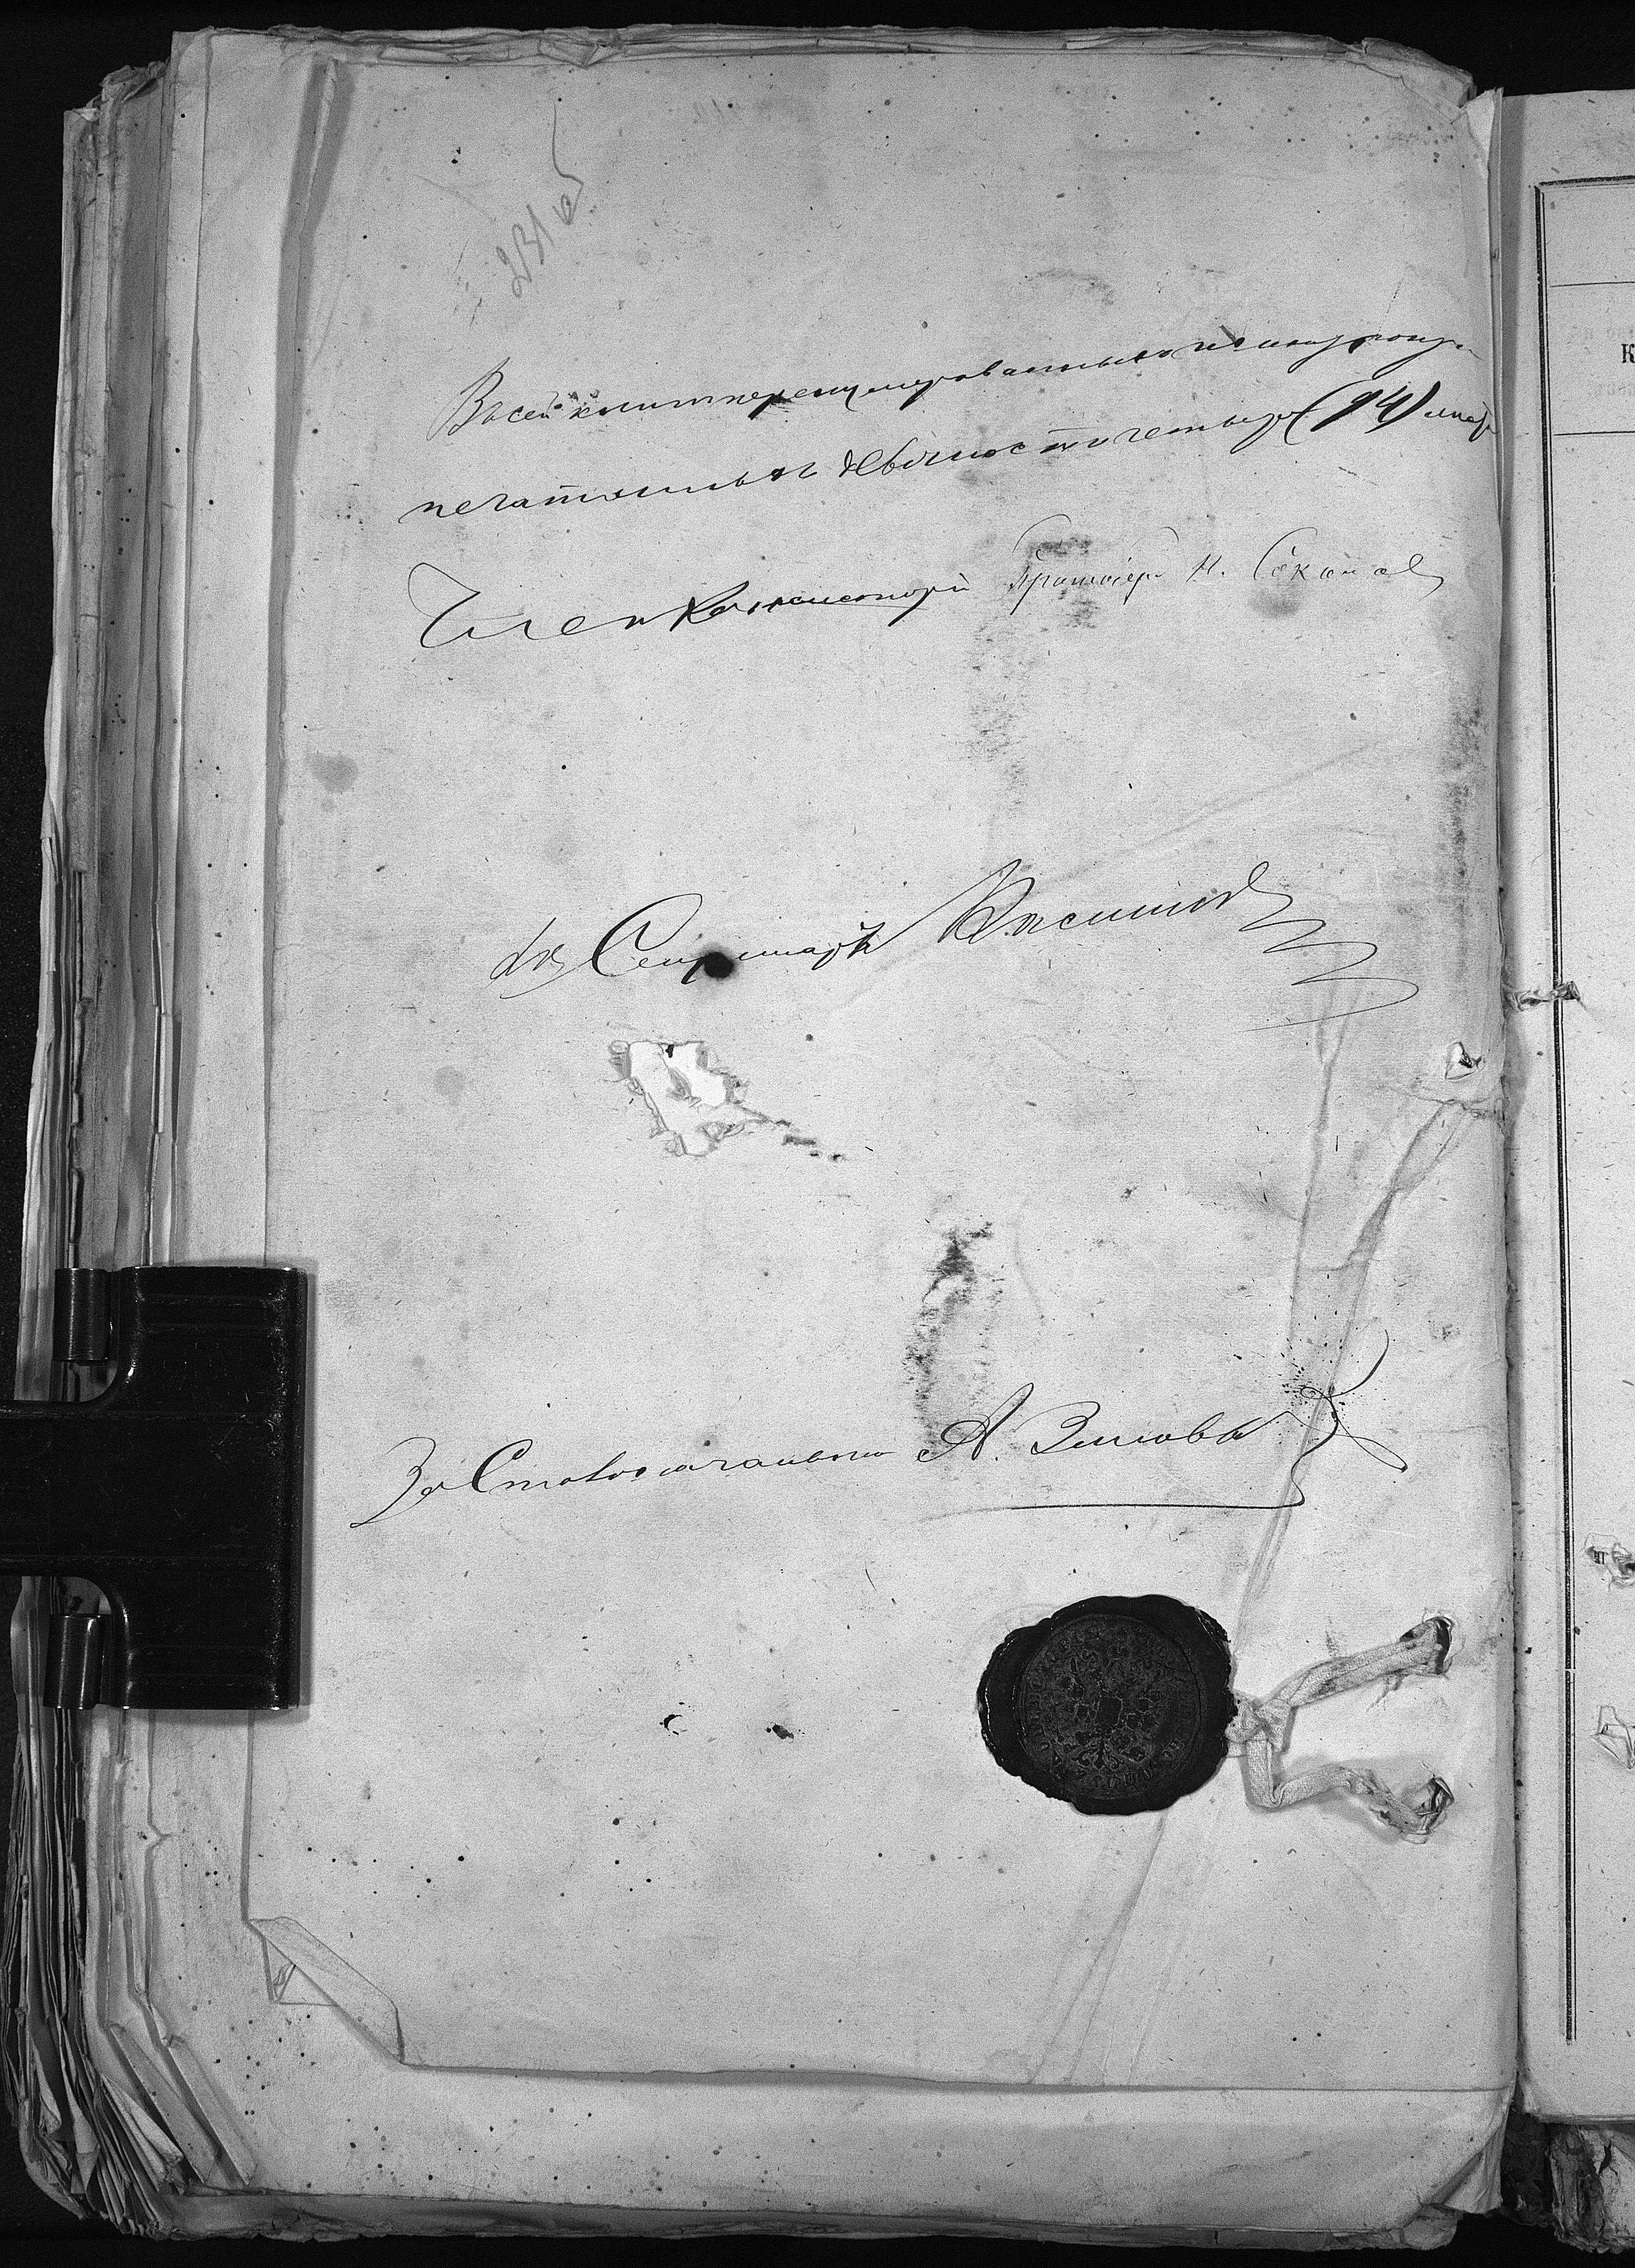 231 об
Въ сей книге перенумерованныхъ и пошнурован
печатныхъ девяносто четыре (94) лист
Членъ Консисторіи Протоіерей Н. Соколов
Секретарь
За Столоначальника А. Зиновъ
К